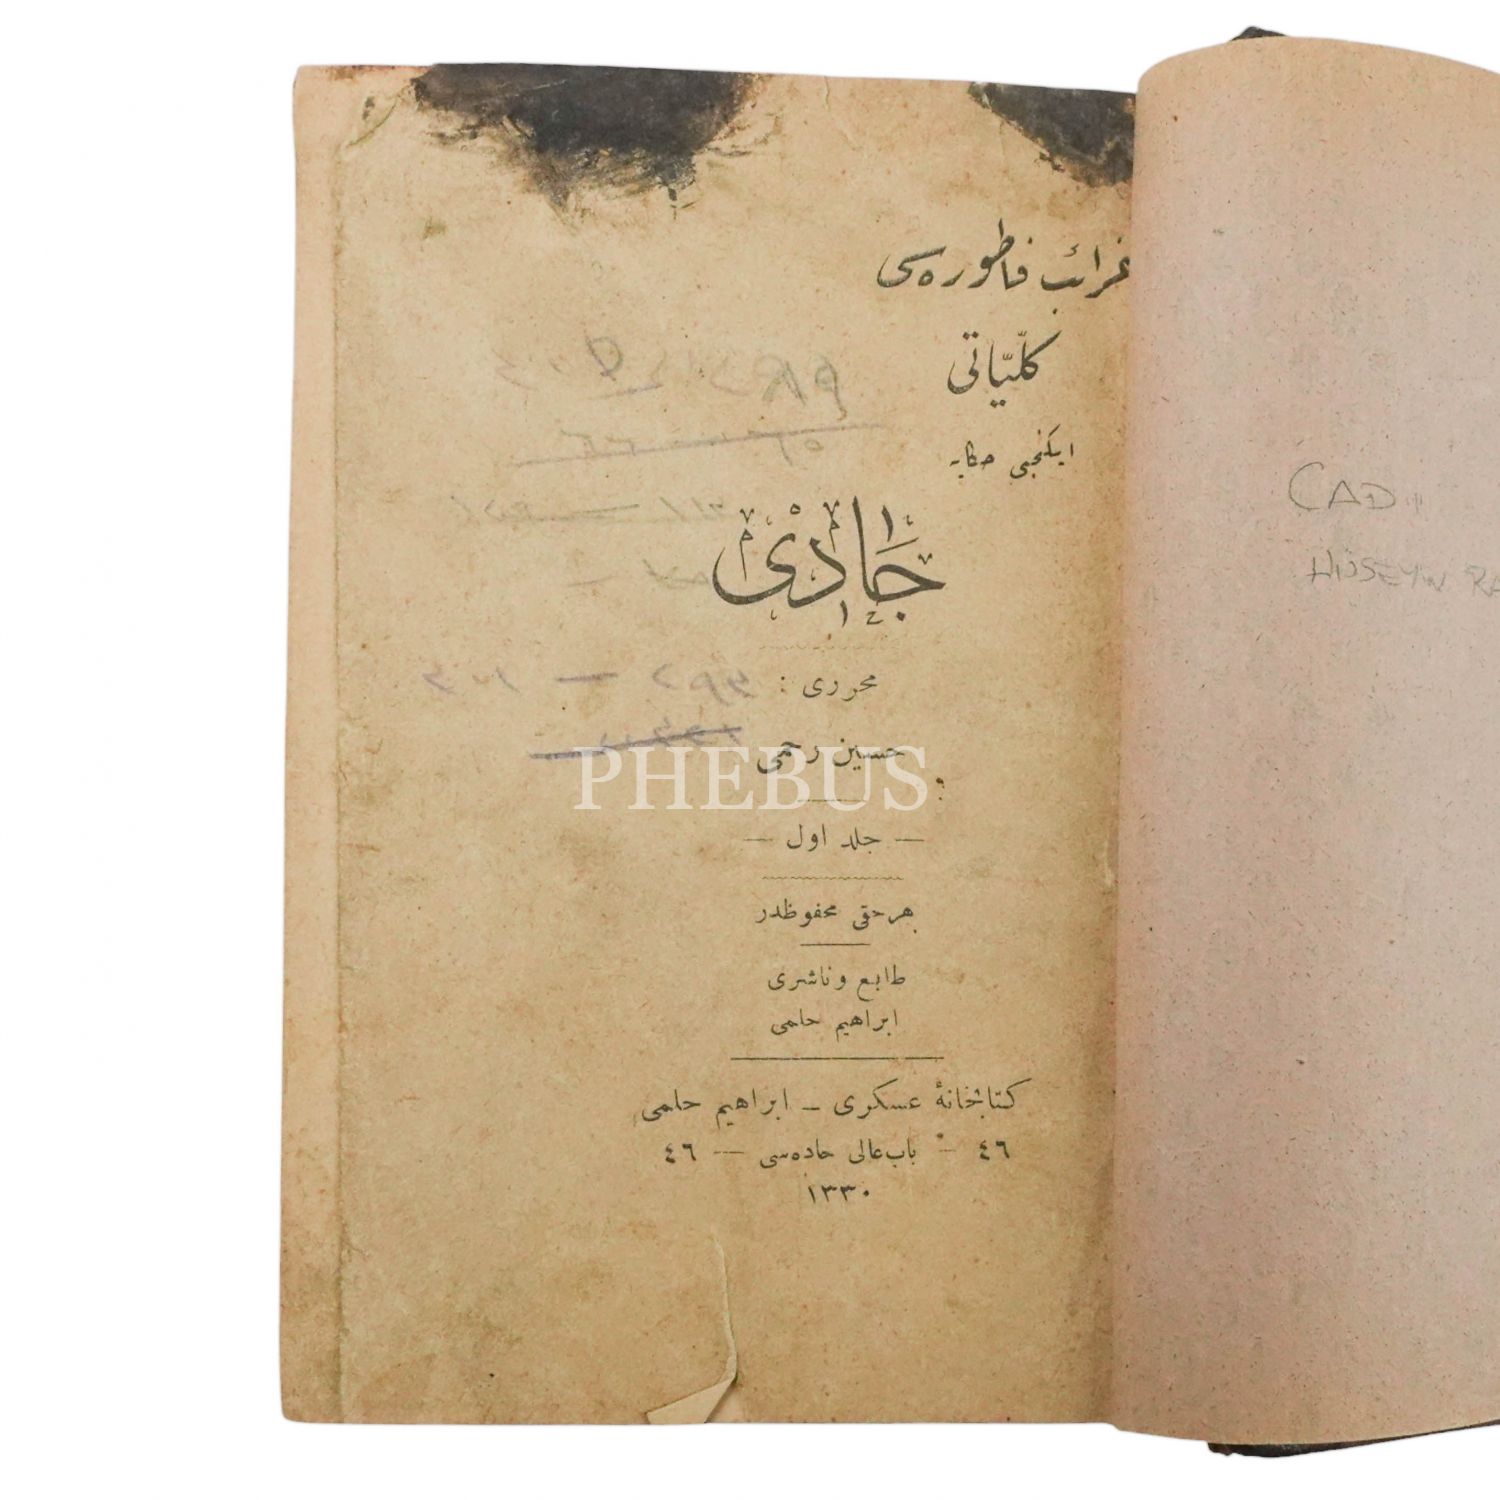 غرائب فاطوره‌سی
كلّیاتی
ایكنجی حكایه
جادی
محرری :
حسین رحمی
PHEBUS
— جلد اول —
هر حقی محفوظدر
طابع و ناشری
ابراهیم حلمی
كتابخانهٔ عسكری – ابراهیم حلمی
٤٦ — باب عالی جاده‌سی — ٤٦
١٣٣٠
CADI
HÜSEYİN RA